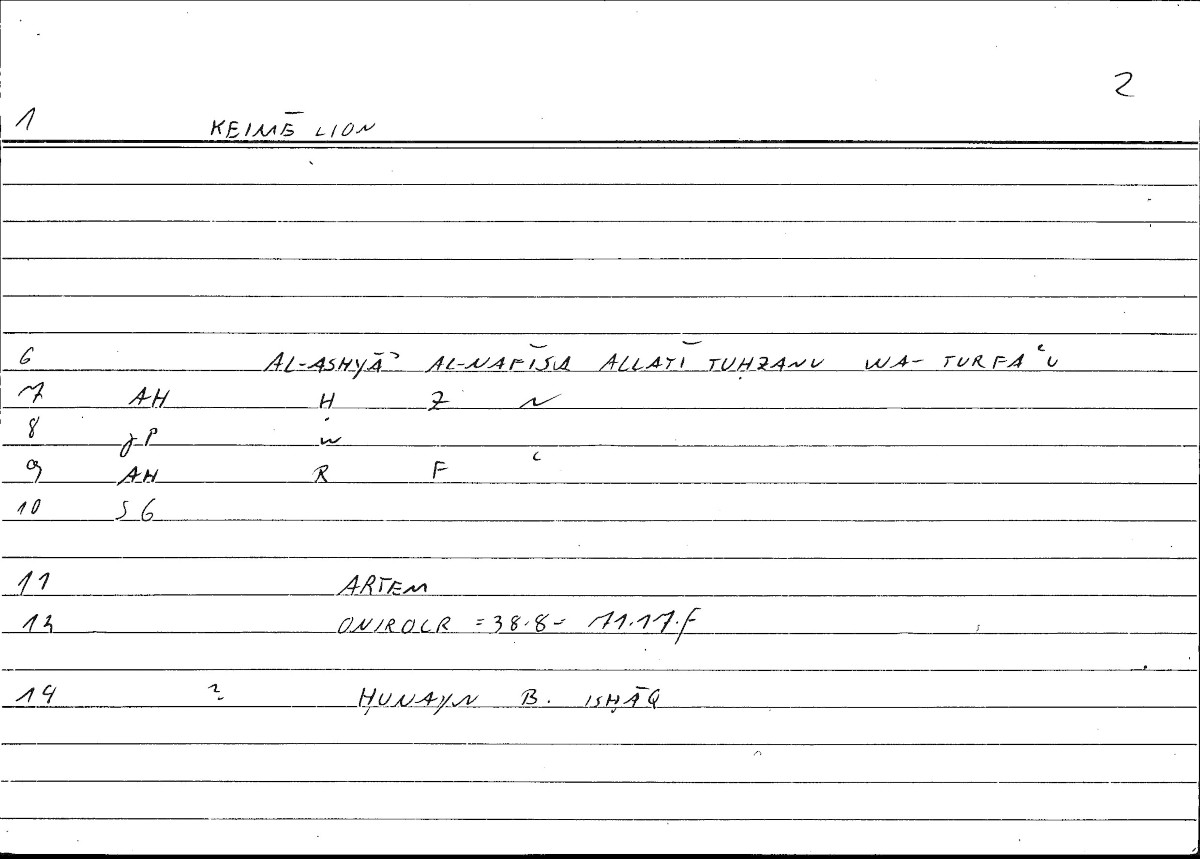 2
1 KEIMĒLION
6 AL-ASHYĀʾ AL-NAFĪSA ALLATĪ TUḤZANU WA- TURFAʿU
7 AH Ḥ Z N
8 JP W
9 AH R F ʿ
10 SG
11 ARTEM
12 ONIROCR = 38.8 - 71.17.F
14 2 ḤUNAYN B. ISḤĀQ